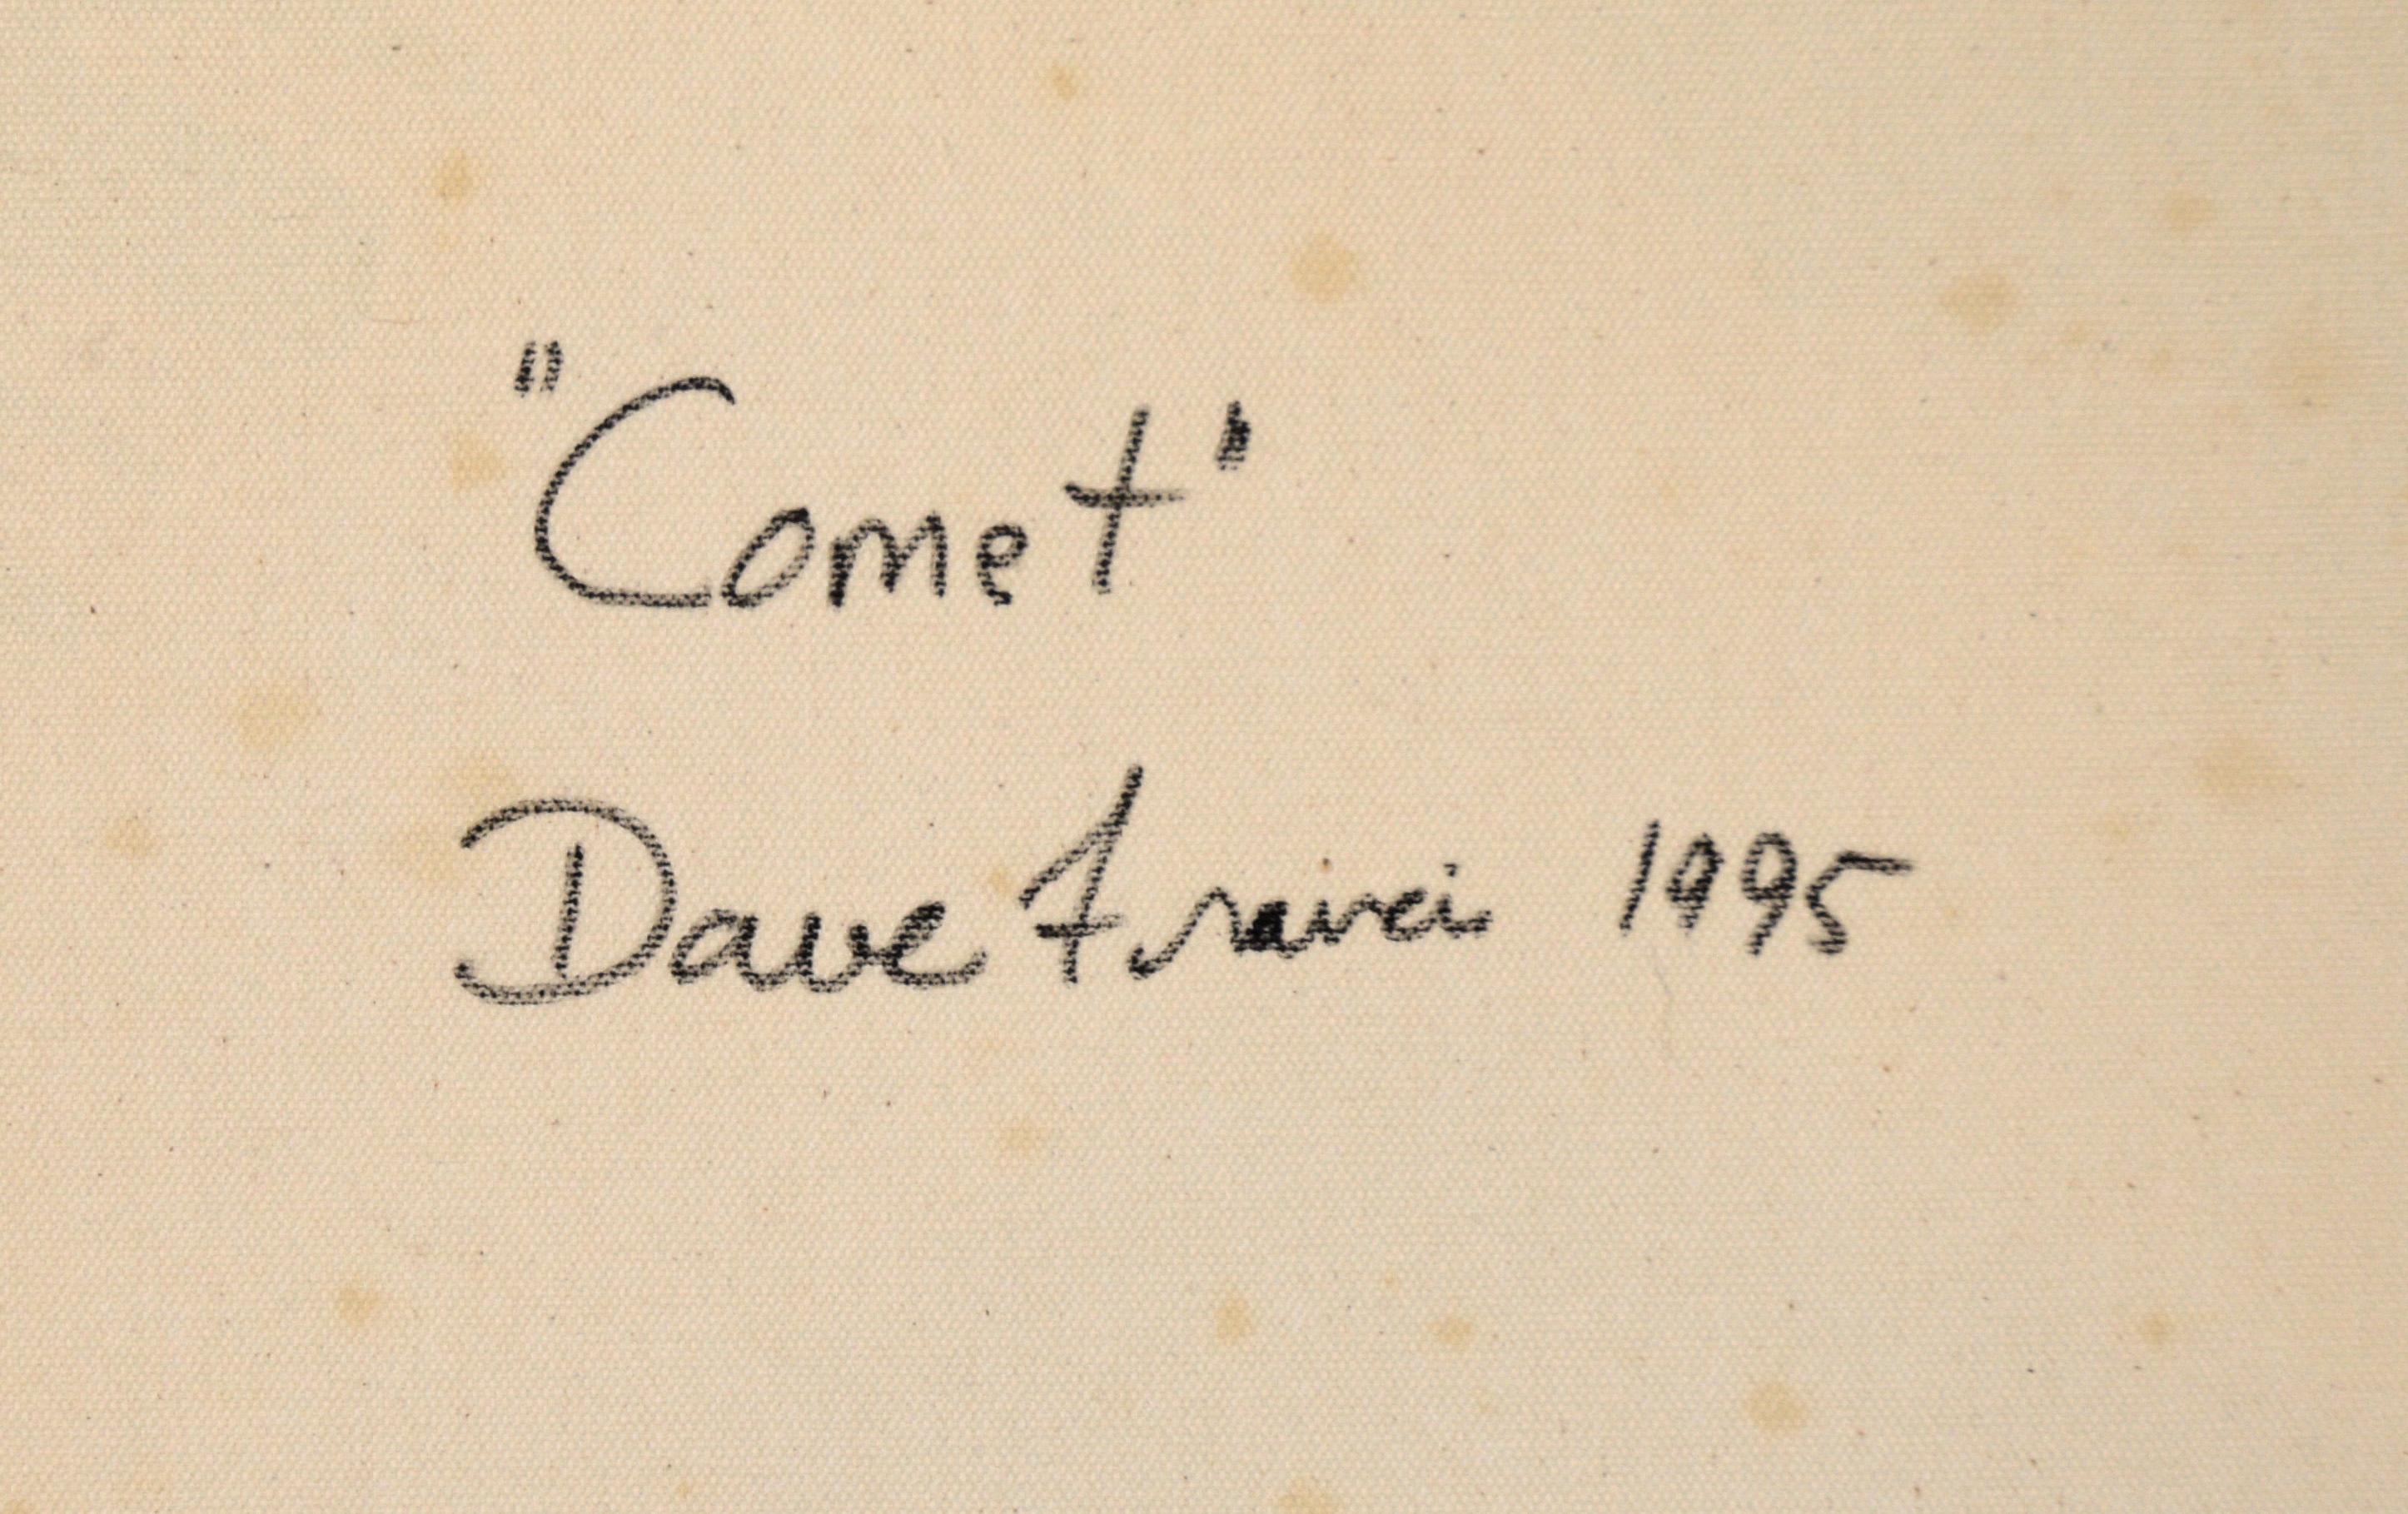 "Comet"
Dave Francis 1995